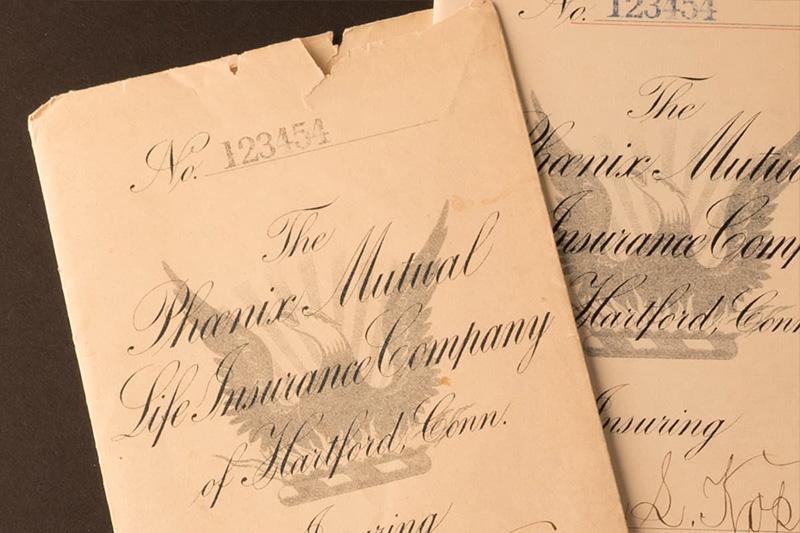 No. 123454
The
Phœnix Mutual
Life Insurance Company
of Hartford, Conn.
Insuring
No. 123454
The
Phœnix Mutu
Insurance Comp
Hartford, Conn
Insuring
S. Kop